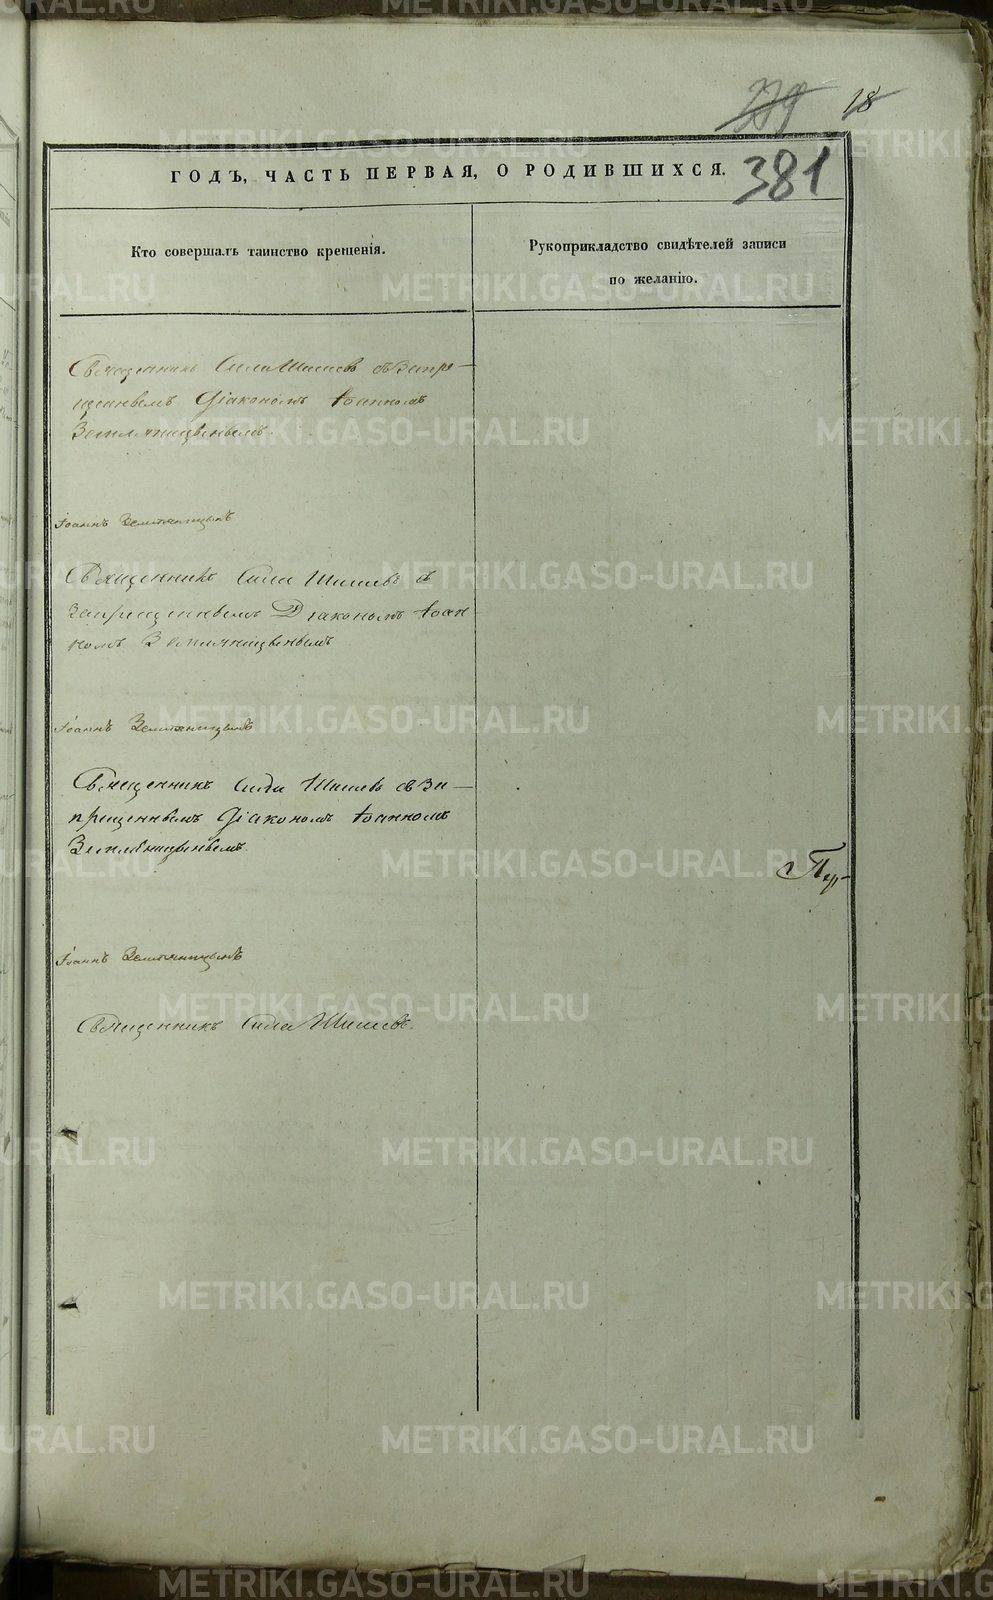 18
381
ГОДЪ, ЧАСТЬ ПЕРВАЯ, О РОДИВШИХСЯ.
Кто совершалъ таинство крещенія.
Рукоприкладство свидѣтелей записи
по желанію.
Священникъ Сила Шишевъ съ Запре-
щеннымъ Діакономъ Іоанномъ
Земляницынымъ.
Іоаннъ Земляницынъ
Священникъ Сила Шишевъ съ
Запрещеннымъ Діакономъ Іоан-
номъ Земляницынымъ
Іоаннъ Земляницынъ
Священникъ Сила Шишевъ съ За-
прещеннымъ Діакономъ Іоанномъ
Земляницынымъ.
Іоаннъ Земляницынъ
Священникъ Сила Шишевъ.
METRIKI.GASO-URAL.RU